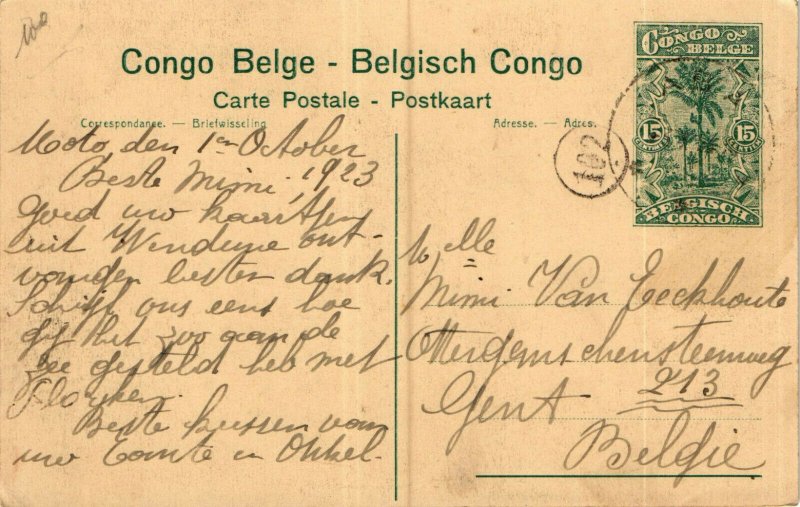 100
Congo Belge - Belgisch Congo
Carte Postale - Postkaart
Correspondance. — Briefwisseling
Adresse. — Adres.
CONGO BELGE
15 15
CENTIMES
BELGISCH CONGO
102
Moto, den 1en October
Beste Mimi. 1923
Goed uw kaartjen
uit Wenduine ont-
vonden besten dank.
Schrijf ons eens hoe
gij het zoo aan de
zee gesteld heb met
Beste kussen van
uw Tante en Onkel.
Melle
Mimi Van Eeckhoute
Ottergemschensteenweg
213
Gent
België